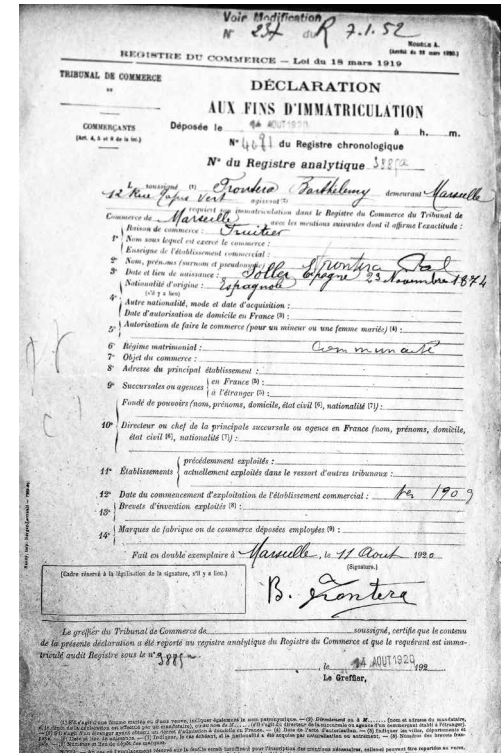 Voir Modification
N° 237 du R 7.1.52
MODÈLE A.
REGISTRE DU COMMERCE — Loi du 18 mars 1919
TRIBUNAL DE COMMERCE
DÉCLARATION
AUX FINS D'IMMATRICULATION
COMMERÇANTS
(Art. 4, 5 et 6 de la loi.)
Déposée le 14 AOUT 1920 à h. m.
N° du Registre chronologique
N° du Registre analytique
L soussigné (1) Frontera Barthélemy demeurant Marseille
12 Rue Tapis Vert agissant
requiert son immatriculation dans le Registre du Commerce du Tribunal de
Commerce de Marseille avec les mentions suivantes dont il affirme l'exactitude :
1° Raison de commerce : Fruitier
Nom sous lequel est exercé le commerce :
Enseigne de l'établissement commercial :
2° Nom, prénoms (surnom et pseudonyme) : Frontera
3° Date et lieu de naissance : Soller Espagne 23 Novembre 1874
Nationalité d'origine : Espagnole
(s'il y a lieu)
4° Autre nationalité, mode et date d'acquisition :
Date d'autorisation de domicile en France (3) :
5° Autorisation de faire le commerce (pour un mineur ou une femme mariée) (4) :
6° Régime matrimonial : Communauté
7° Objet du commerce :
8° Adresse du principal établissement :
9° Succursales ou agences en France (5) :
à l'étranger (5) :
Fondé de pouvoirs (nom, prénoms, domicile, état civil (6), nationalité (7)) :
10° Directeur ou chef de la principale succursale ou agence en France (nom, prénoms, domicile,
état civil (6), nationalité (7)) :
11° Établissements précédemment exploités :
actuellement exploités dans le ressort d'autres tribunaux :
12° Date du commencement d'exploitation de l'établissement commercial : 1909
13° Brevets d'invention exploités (8) :
14° Marques de fabrique ou de commerce déposées employées (9) :
Fait en double exemplaire à Marseille, le 11 Aout 1920
(Signature.)
(Cadre réservé à la légalisation de la signature, s'il y a lieu.)
B. Frontera
Le greffier du Tribunal de Commerce de soussigné, certifie que le contenu
de la présente déclaration a été reporté au registre analytique du Registre du Commerce et que le requérant est imma-
triculé audit Registre sous le n°
, le 14 AOUT 1920 192
Le Greffier,